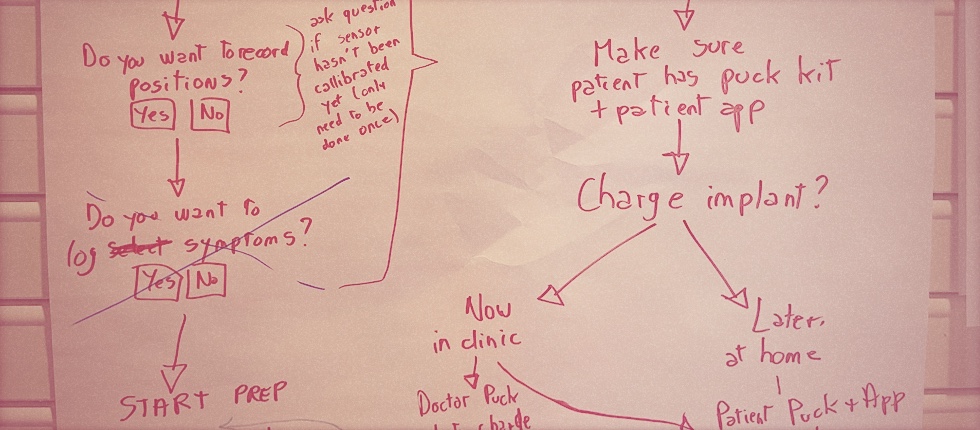 Do you want to record
positions?
Yes No
ask question
if sensor
hasn't been
callibrated
yet (only
need to be
done once)
Do you want to
log select symptoms?
Yes No
START PREP
Make sure
patient has puck kit
+ patient app
Charge implant?
Now
in clinic
Doctor Puck
charge
Later,
at home
Patient Puck + App